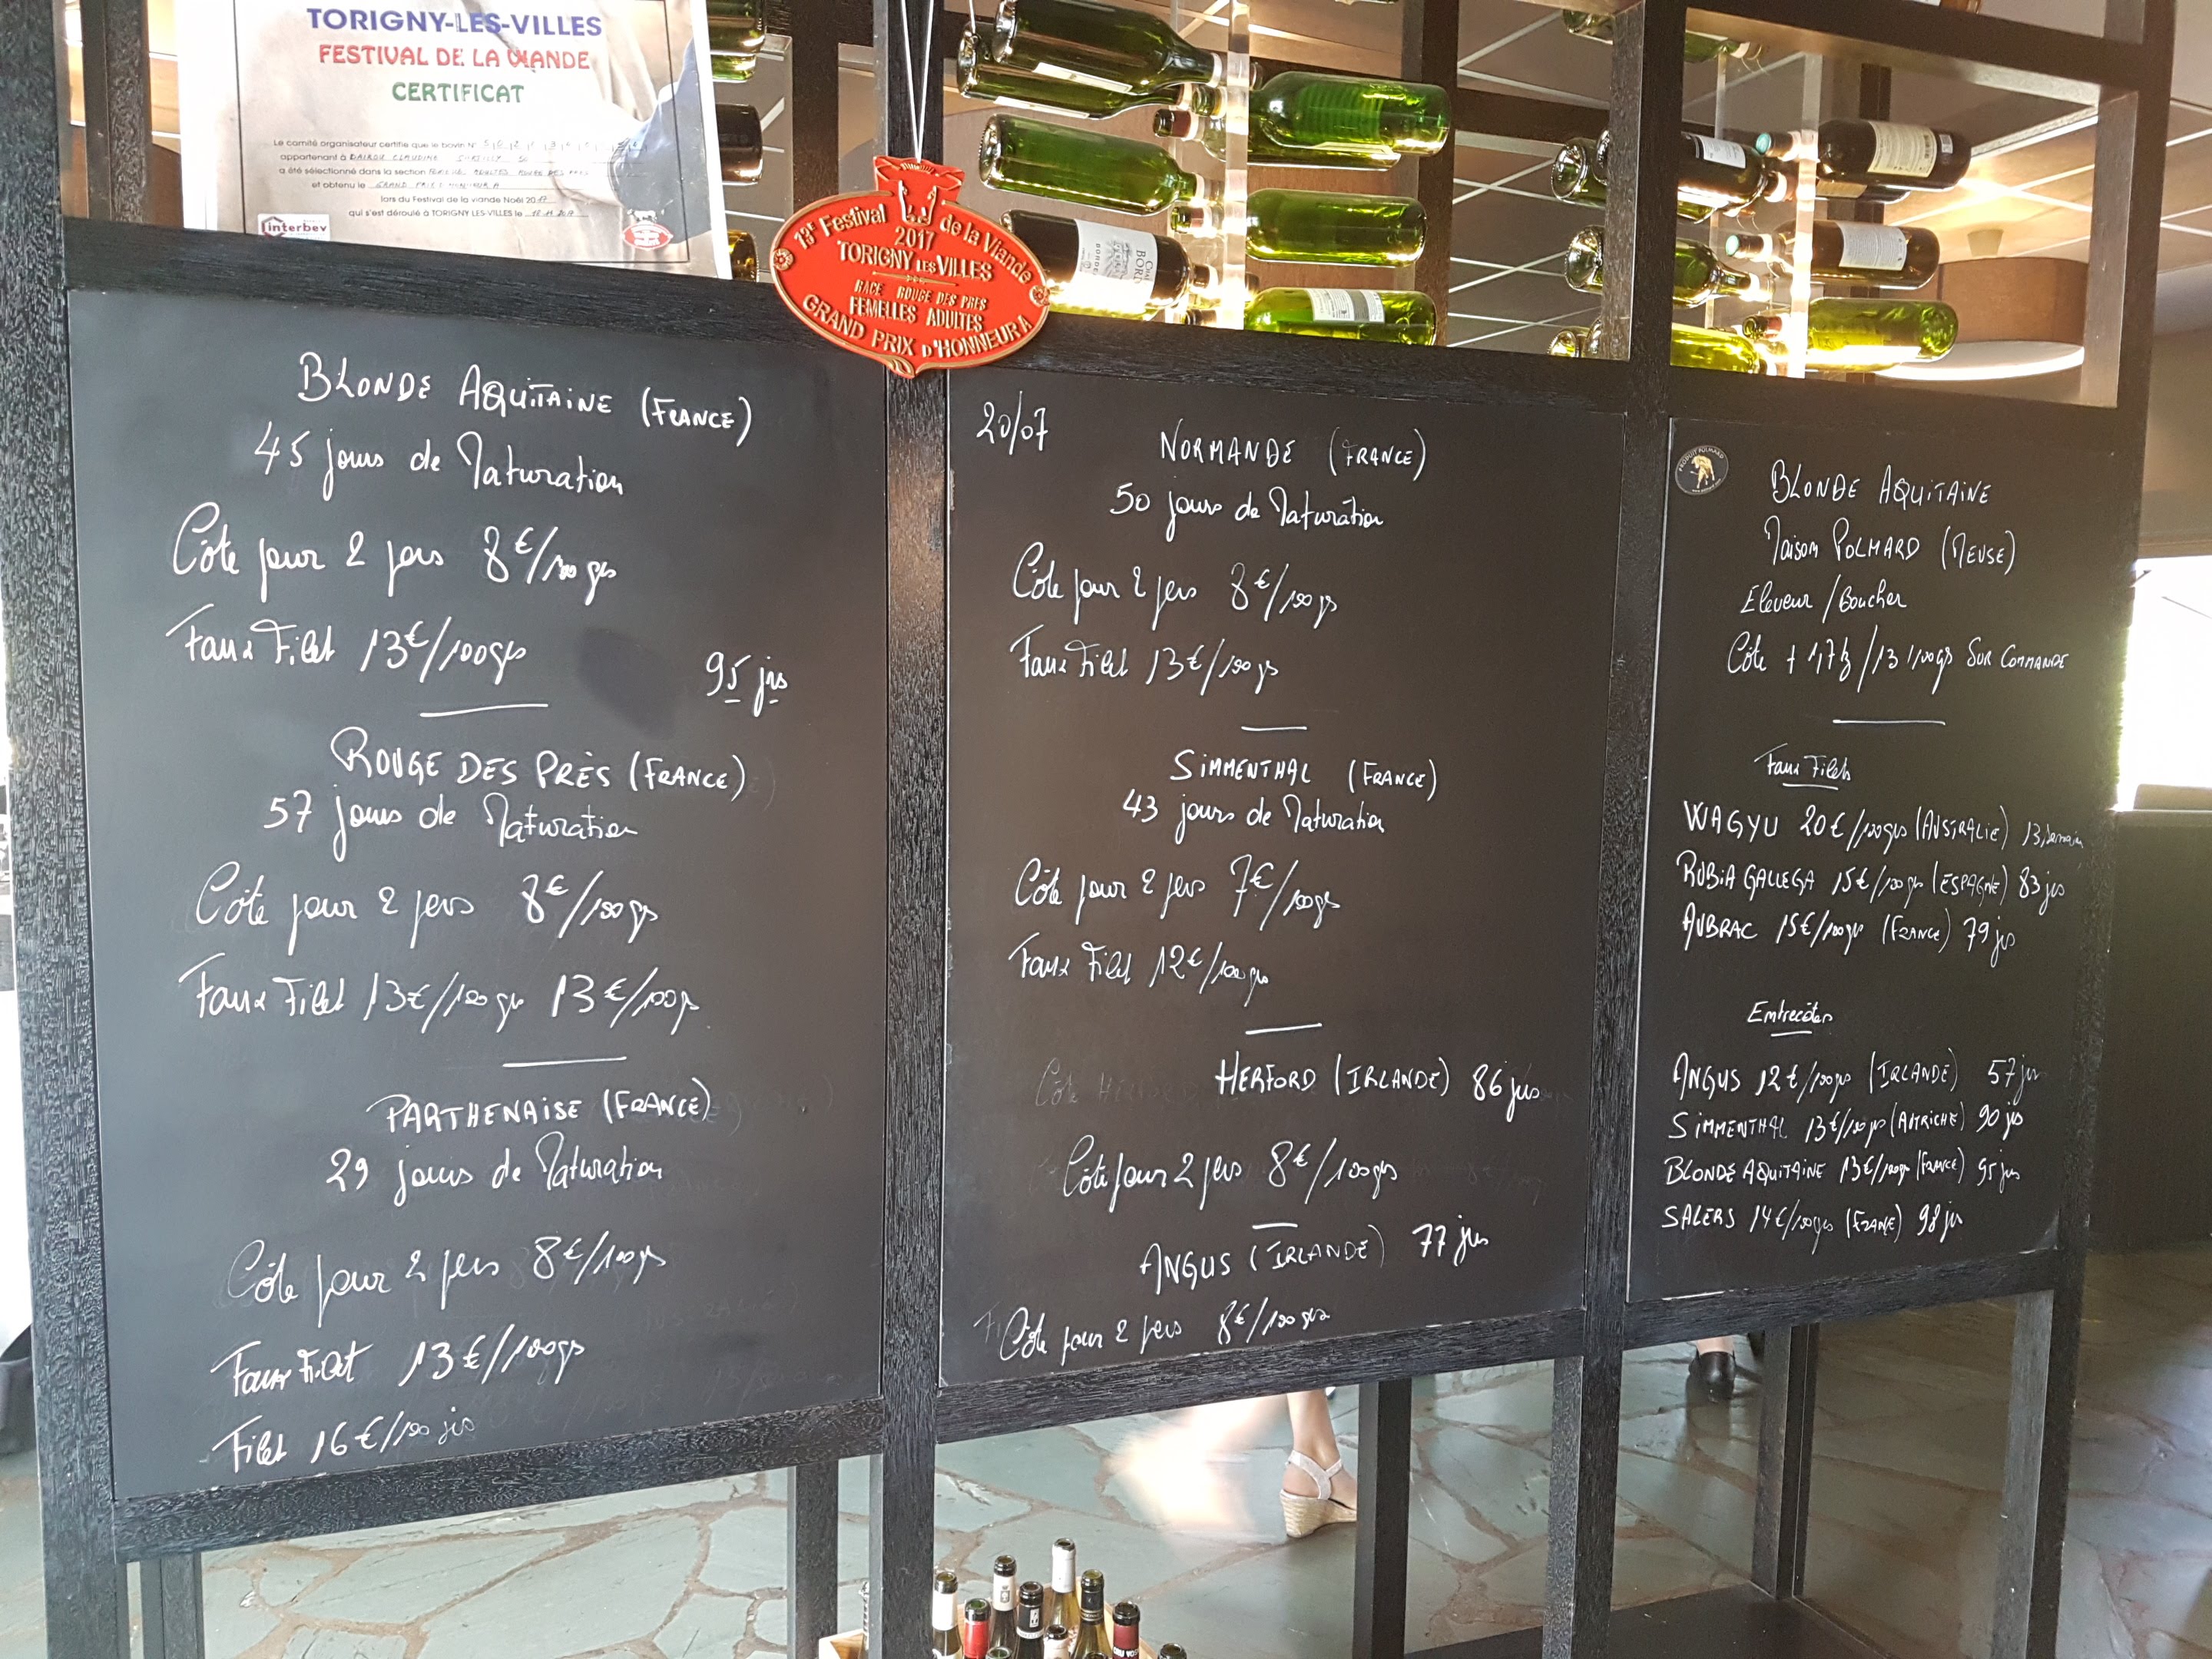 TORIGNY-LES-VILLES
FESTIVAL DE LA VIANDE
CERTIFICAT
Le comité organisateur certifie que le bovin N°
appartenant à DAIROU CLAUDINE
a été sélectionné dans la section FEMELLES ADULTES ROUGE DES PRES
et obtenu le GRAND PRIX D'HONNEUR A
lors du Festival de la viande Noël 2017
qui s'est déroulé à TORIGNY LES VILLES le
interbev
13e Festival de la Viande
2017
TORIGNY LES VILLES
RACE ROUGE DES PRES
FEMELLES ADULTES
GRAND PRIX D'HONNEUR A
BLONDE AQUITAINE (FRANCE)
45 jours de Maturation
Côte pour 2 pers 8€/100 grs
Faux Filet 13€/100grs
95 jrs
ROUGE DES PRÈS (FRANCE)
57 jours de Maturation
Côte pour 2 pers 8€/100grs
Faux Filet 13€/100 grs 13€/100gr
PARTHENAISE (FRANCE)
29 jours de Maturation
Côte pour 2 pers 8€/100grs
Faux Filet 13€/100grs
Filet 16€/100 jrs
20/07
NORMANDE (FRANCE)
50 jours de Maturation
Côte pour 2 pers 8€/100grs
Faux Filet 13€/100 grs
SIMMENTHAL (FRANCE)
43 jours de Maturation
Côte pour 2 pers 7€/100grs
Faux Filet 12€/100grs
HERFORD (IRLANDE) 86 jrs
Côte pour 2 pers 8€/100grs
ANGUS (IRLANDE) 77 jrs
Côte pour 2 pers 8€/100 grs
PRODUIT POLMARD
BLONDE AQUITAINE
Maison POLMARD (MEUSE)
Eleveur/Boucher
Côte + 1,7k/13 €/100grs SUR COMMANDE
Faux Filets
WAGYU 20€/100grs (AUSTRALIE) 13 semain
RUBIA GALLEGA 15€/100grs (ESPAGNE) 83 jrs
AUBRAC 15€/100grs (FRANCE) 79 jrs
Entrecôtes
ANGUS 12€/100grs (IRLANDE) 57 jrs
SIMMENTHAL 13€/100grs (AUTRICHE) 90 jrs
BLONDE AQUITAINE 13€/100gr (FRANCE) 95 jrs
SALERS 14€/100grs (FRANCE) 98 jrs